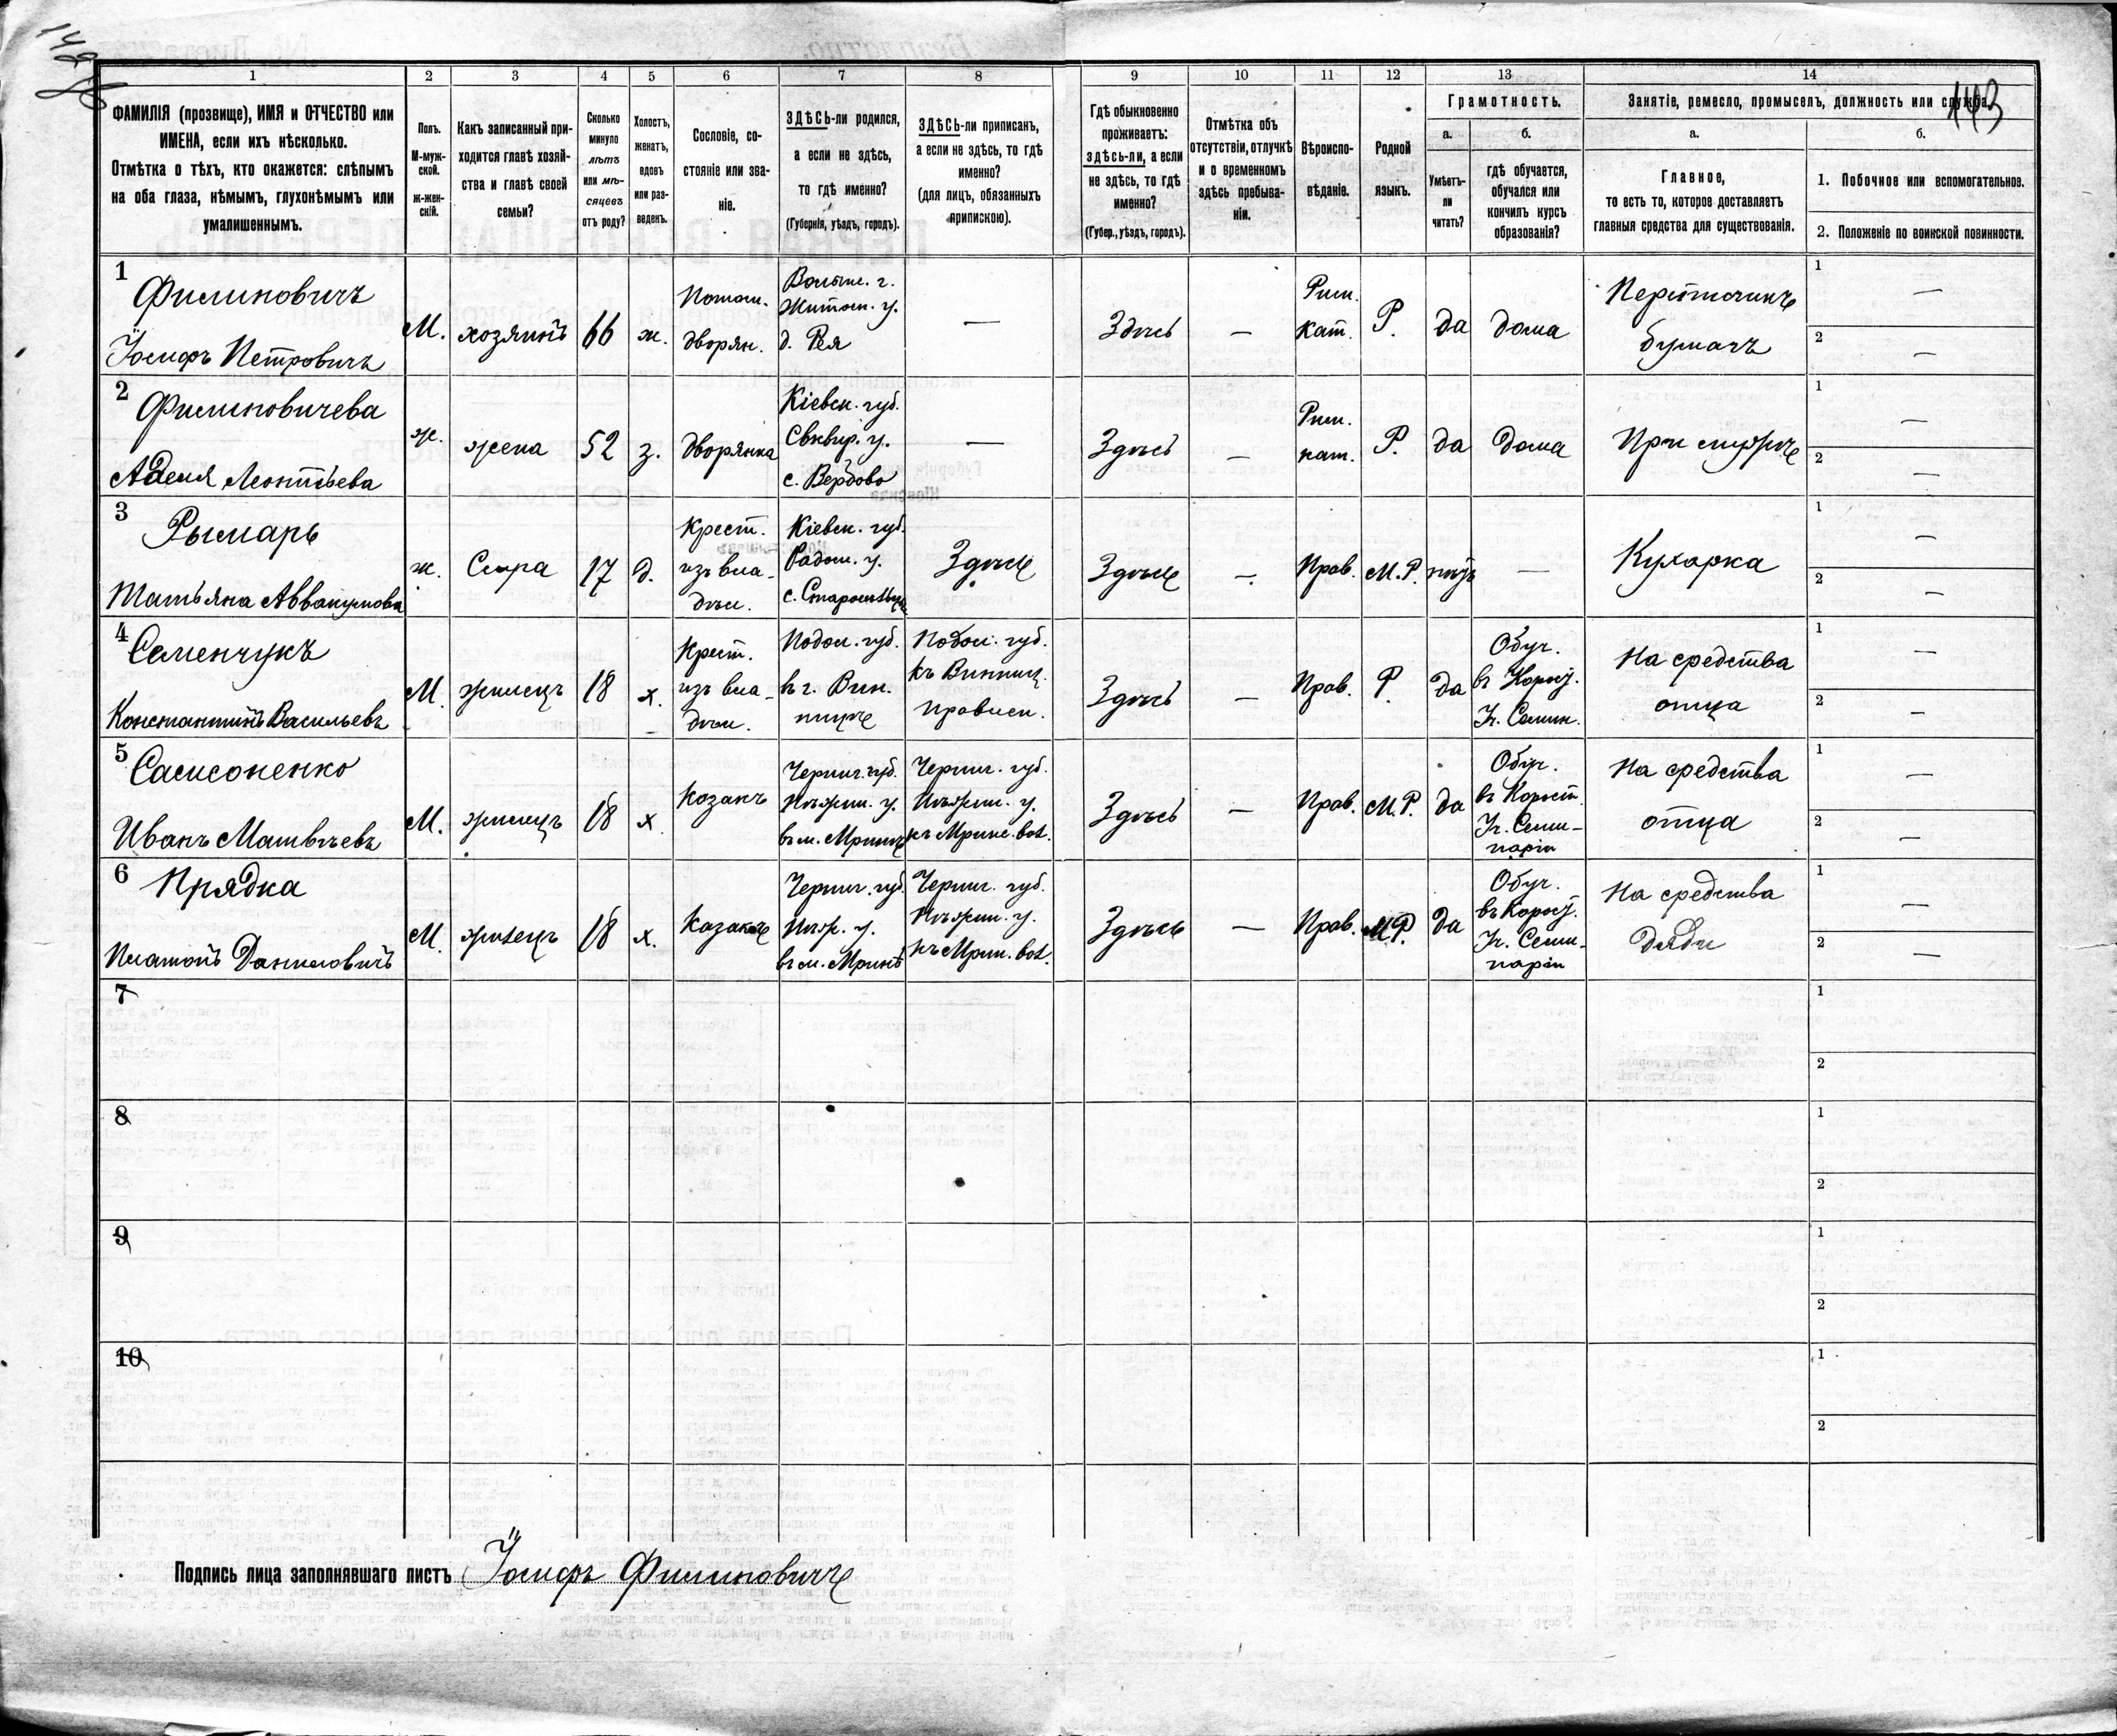 142 об
143
1 2 3 4 5 6 7 8 9 10 11 12 13 14
ФАМИЛІЯ (прозвище), ИМЯ и ОТЧЕСТВО или
ИМЕНА, если ихъ нѣсколько.
Отмѣтка о тѣхъ, кто окажется: слѣпымъ
на оба глаза, нѣмымъ, глухонѣмымъ или
умалишеннымъ.
Полъ.
М-муж-
ской.
ж-жен-
скій.
Какъ записанный при-
ходится главѣ хозяй-
ства и главѣ своей
семьи?
Сколько
минуло
лѣтъ
или мѣ-
сяцевъ
отъ роду?
Холостъ,
женатъ,
вдовъ
или раз-
веденъ.
Сословіе, со-
стояніе или зва-
ніе.
ЗДѢСЬ-ли родился,
а если не здѣсь,
то гдѣ именно?
(Губернія, уѣздъ, городъ).
ЗДѢСЬ-ли приписанъ,
а если не здѣсь, то гдѣ
именно?
(для лицъ, обязанныхъ
припискою).
Гдѣ обыкновенно
проживаетъ:
здѣсь-ли, а если
не здѣсь, то гдѣ
именно?
(Губер., уѣздъ, городъ).
Отмѣтка объ
отсутствіи, отлучкѣ
и о временномъ
здѣсь пребыва-
ніи.
Вѣроиспо-
вѣданіе.
Родной
языкъ.
Грамотность.
а.
Умѣетъ-
ли
читать?
б.
гдѣ обучается,
обучался или
кончилъ курсъ
образованія?
Занятіе, ремесло, промыселъ, должность или служба.
а.
Главное,
то есть то, которое доставляетъ
главныя средства для существованія.
б.
1. Побочное или вспомогательное.
2. Положеніе по воинской повинности.
1
Филиповичъ
Іосифъ Петровичъ
М.
хозяинъ
66
ж.
Потом.
дворян.
Волын. г.
Житом. у.
д. Рея
—
Здѣсь
—
Рим.
кат.
Р.
да
дома
Перепищикъ
бумагъ
1 —
2 —
2
Филиповичева
Аделя Леонтьева
ж.
жена
52
з.
дворянка
Кіевск. губ.
Сквир. у.
с. Вербово
—
Здѣсь
—
Рим.
кат.
Р.
да
Дома
При мужѣ
1 —
2 —
3
Рымарь
Татьяна Аввакумова
ж.
17
д.
Крест.
изъ вла-
дѣл.
Кіевск. губ.
Радом. у.
Здѣсь
Здѣсь
—
Прав.
М.Р.
нѣтъ
—
Кухарка
1 —
2 —
4
Семенчукъ
Константинъ Васильевъ
М.
жилецъ
18
х.
Крест.
изъ вла-
дѣл.
Подол. губ.
въ г. Вин-
ницѣ
Подол. губ.
къ Винниц.
Здѣсь
—
Прав.
Р.
да
Обуч.
въ Корост.
Уч. Семин.
На средства
отца
1 —
2 —
5
Самсоненко
Иванъ Матвѣевъ
М.
жилецъ
18
х
Козакъ
Черниг. губ.
Нѣжин. у.
въ м. Мринѣ
Черниг. губ.
Нѣжин. у.
къ Мрин. вол.
Здѣсь
—
Прав.
М.Р.
да
Обуч.
въ Корост.
Уч. Семи-
наріи
На средства
отца
1 —
2 —
6
Прядка
Платонъ Даниловичъ
М.
жилецъ
18
х.
Казакъ
Черниг. губ.
Нѣж. у.
въ м. Мринѣ
Черниг. губ.
Нѣжин. у.
къ Мрин. вол.
Здѣсь
—
Прав.
М.Р.
да
Обуч.
въ Корост.
Уч. Семи-
наріи
На средства
дяди
1 —
2 —
7
1
2
8
1
2
9
1
2
10
1
2
Подпись лица заполнявшаго листъ Іосифъ Филиповичъ